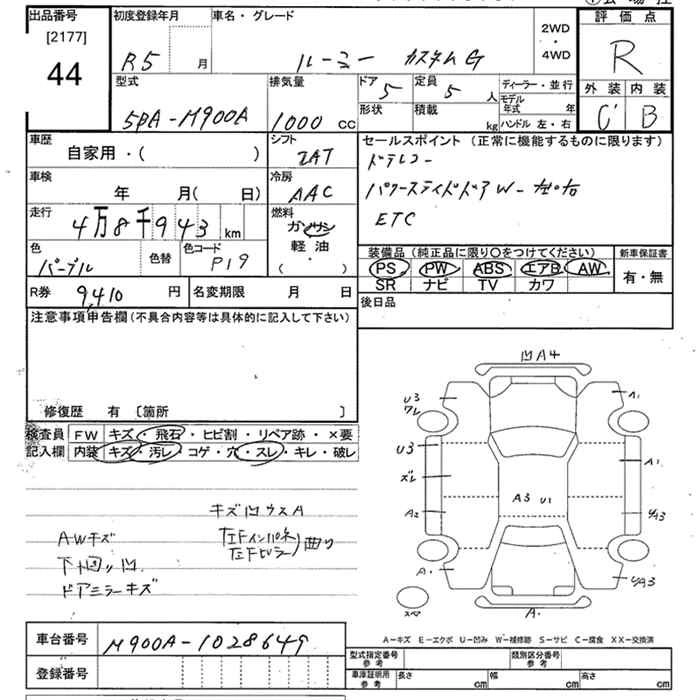 出品番号
[2177]
44
初度登録年月
R5 月
車名・グレード
ルーミー カスタムG
2WD
・
4WD
評価点
R
外装 内装
C' B
型式
5BA-M900A
排気量
1000 cc
ドア
5
定員
5 人
ディーラー・並行
モデル年式 年
形状
積載
kg
ハンドル 左・右
車歴
自家用・( )
シフト
IAT
セールスポイント (正常に機能するものに限ります)
ドラレコー
パワースライドドアW-左右
ETC
車検
年 月( 日)
冷房
AAC
走行
4万8千943 km
燃料
ガソリン
軽油
( ・ )
色
パープル
色替
色コード
P19
装備品 (純正品に限り〇をつけてください)
PS PW ABS エアB AW
SR ナビ TV カワ
新車保証書
有・無
R券 9410 円
名変期限 月 日
後日品
注意事項申告欄(不具合内容等は具体的に記入して下さい)
修復歴 有 〔箇所 〕
検査員 FW キズ・飛石・ヒビ割・リペア跡・×要
記入欄 内装 キズ・汚レ・コゲ・穴・スレ・キレ・破レ
キズ凹ウスA
AWキズ
左Fインパネ
左Fピラー
曲り
下回り凹
ドアミラーキズ
凹A4
U3
ワレ
A1
U3
ズレ
A1
A3 U1
A2
A3
A・
A3
スペア
A・
A-キズ E-エクボ U-凹み W-補修跡 S-サビ C-腐食 XX-交換済
車台番号
M900A-1028649
登録番号
型式指定番号
参考
類別区分番号
参考
車庫証明用
参考
長さ cm
幅 cm
高さ cm